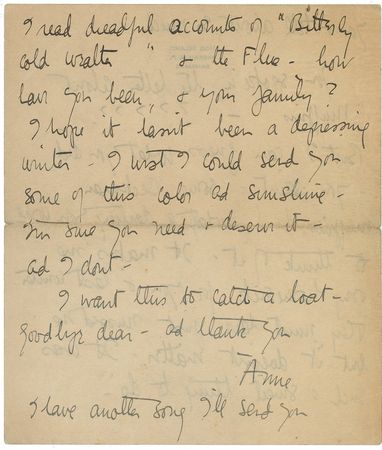 I read dreadful accounts of "Bitterly
cold weather" & the Flue - how
have you been, & your family?
I hope it hasn't been a depressing
winter - I wish I could send you
some of this color and sunshine -
I'm sure you need & deserve it -
and I don't -
I want this to catch a boat -
Goodbye dear - and thank you
Anne
I have another song I'll send you